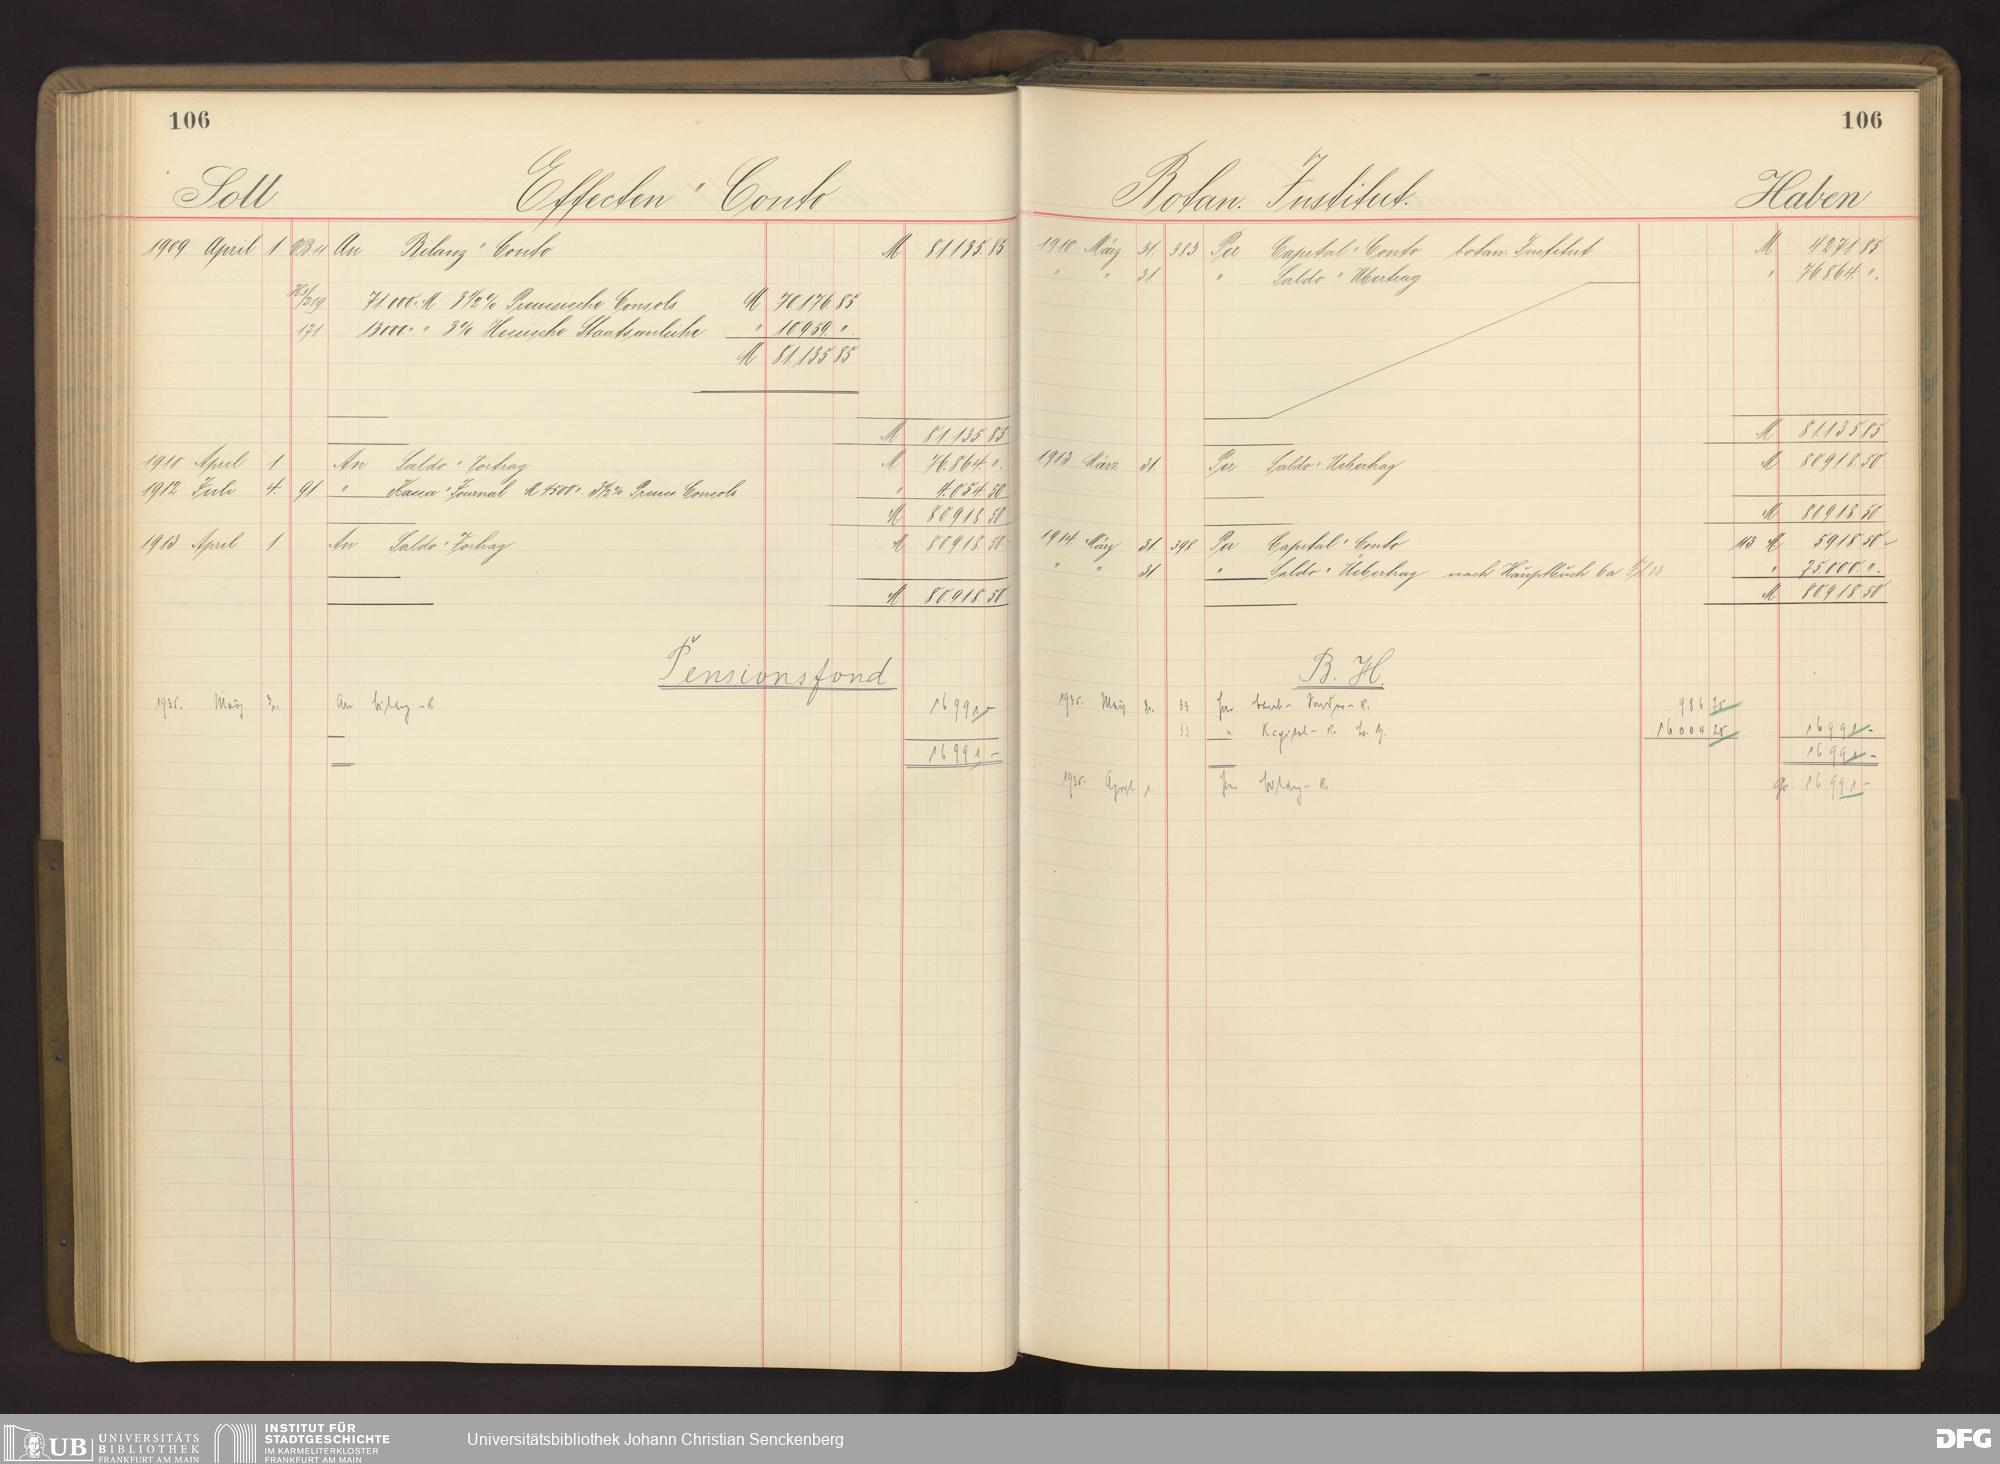 106
Soll Effecten " Conto
1909. April 1 An Bilanz " Conto M 81135.85
219 71.000.- M 3 1/2 % Preussische Consols M 70176 85
171 13000.- " 3 % Hessische Staatsanleihe " 10959. ".
M 81135 85
M 81135.85
1910 April 1 An Saldo " Vortrag M 76.864. ".
1912 Juli 4. 91 " Kassa " Journal M 4500.- 3 1/2 % Preuss Consols " 4.054.50
M 80918.50
1913 April 1 An Saldo " Vortrag M 80918.50
M 80918.50
Pensionsfond
März An Bilanz - K 16991 -
16991 -
106
Botan. Institut. Haben
1910 März 31. 383 Per Capital " Conto botan. Institut M 4271.85
" " 31. " Saldo " Übertrag " 76864. ".
M 81135 85
1913 März 31. Per Saldo " Uebertrag M 80918.50
M 80918.50
1914. März 31. 398 Per Capital " Conto 113 M 5918.50
" " 31 " Saldo " Uebertrag nach Hauptbuch 6a 33 " 75000. ".
M 80918.50
B. H.
März 33 986 75
33 " Kapital - K. 16004 25 16991 -
16991 -
April 1. Bilanz - K. 16991 -
UB UNIVERSITÄTS
BIBLIOTHEK
FRANKFURT AM MAIN
INSTITUT FÜR
STADTGESCHICHTE
IM KARMELITERKLOSTER
FRANKFURT AM MAIN
Universitätsbibliothek Johann Christian Senckenberg
DFG